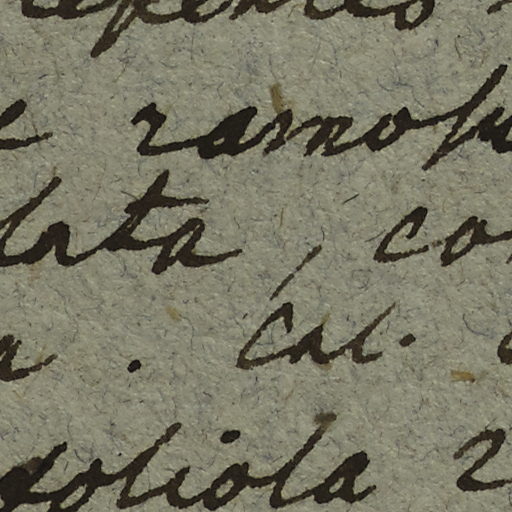 ramosu
lata, co
a. Cal.
foliola 2